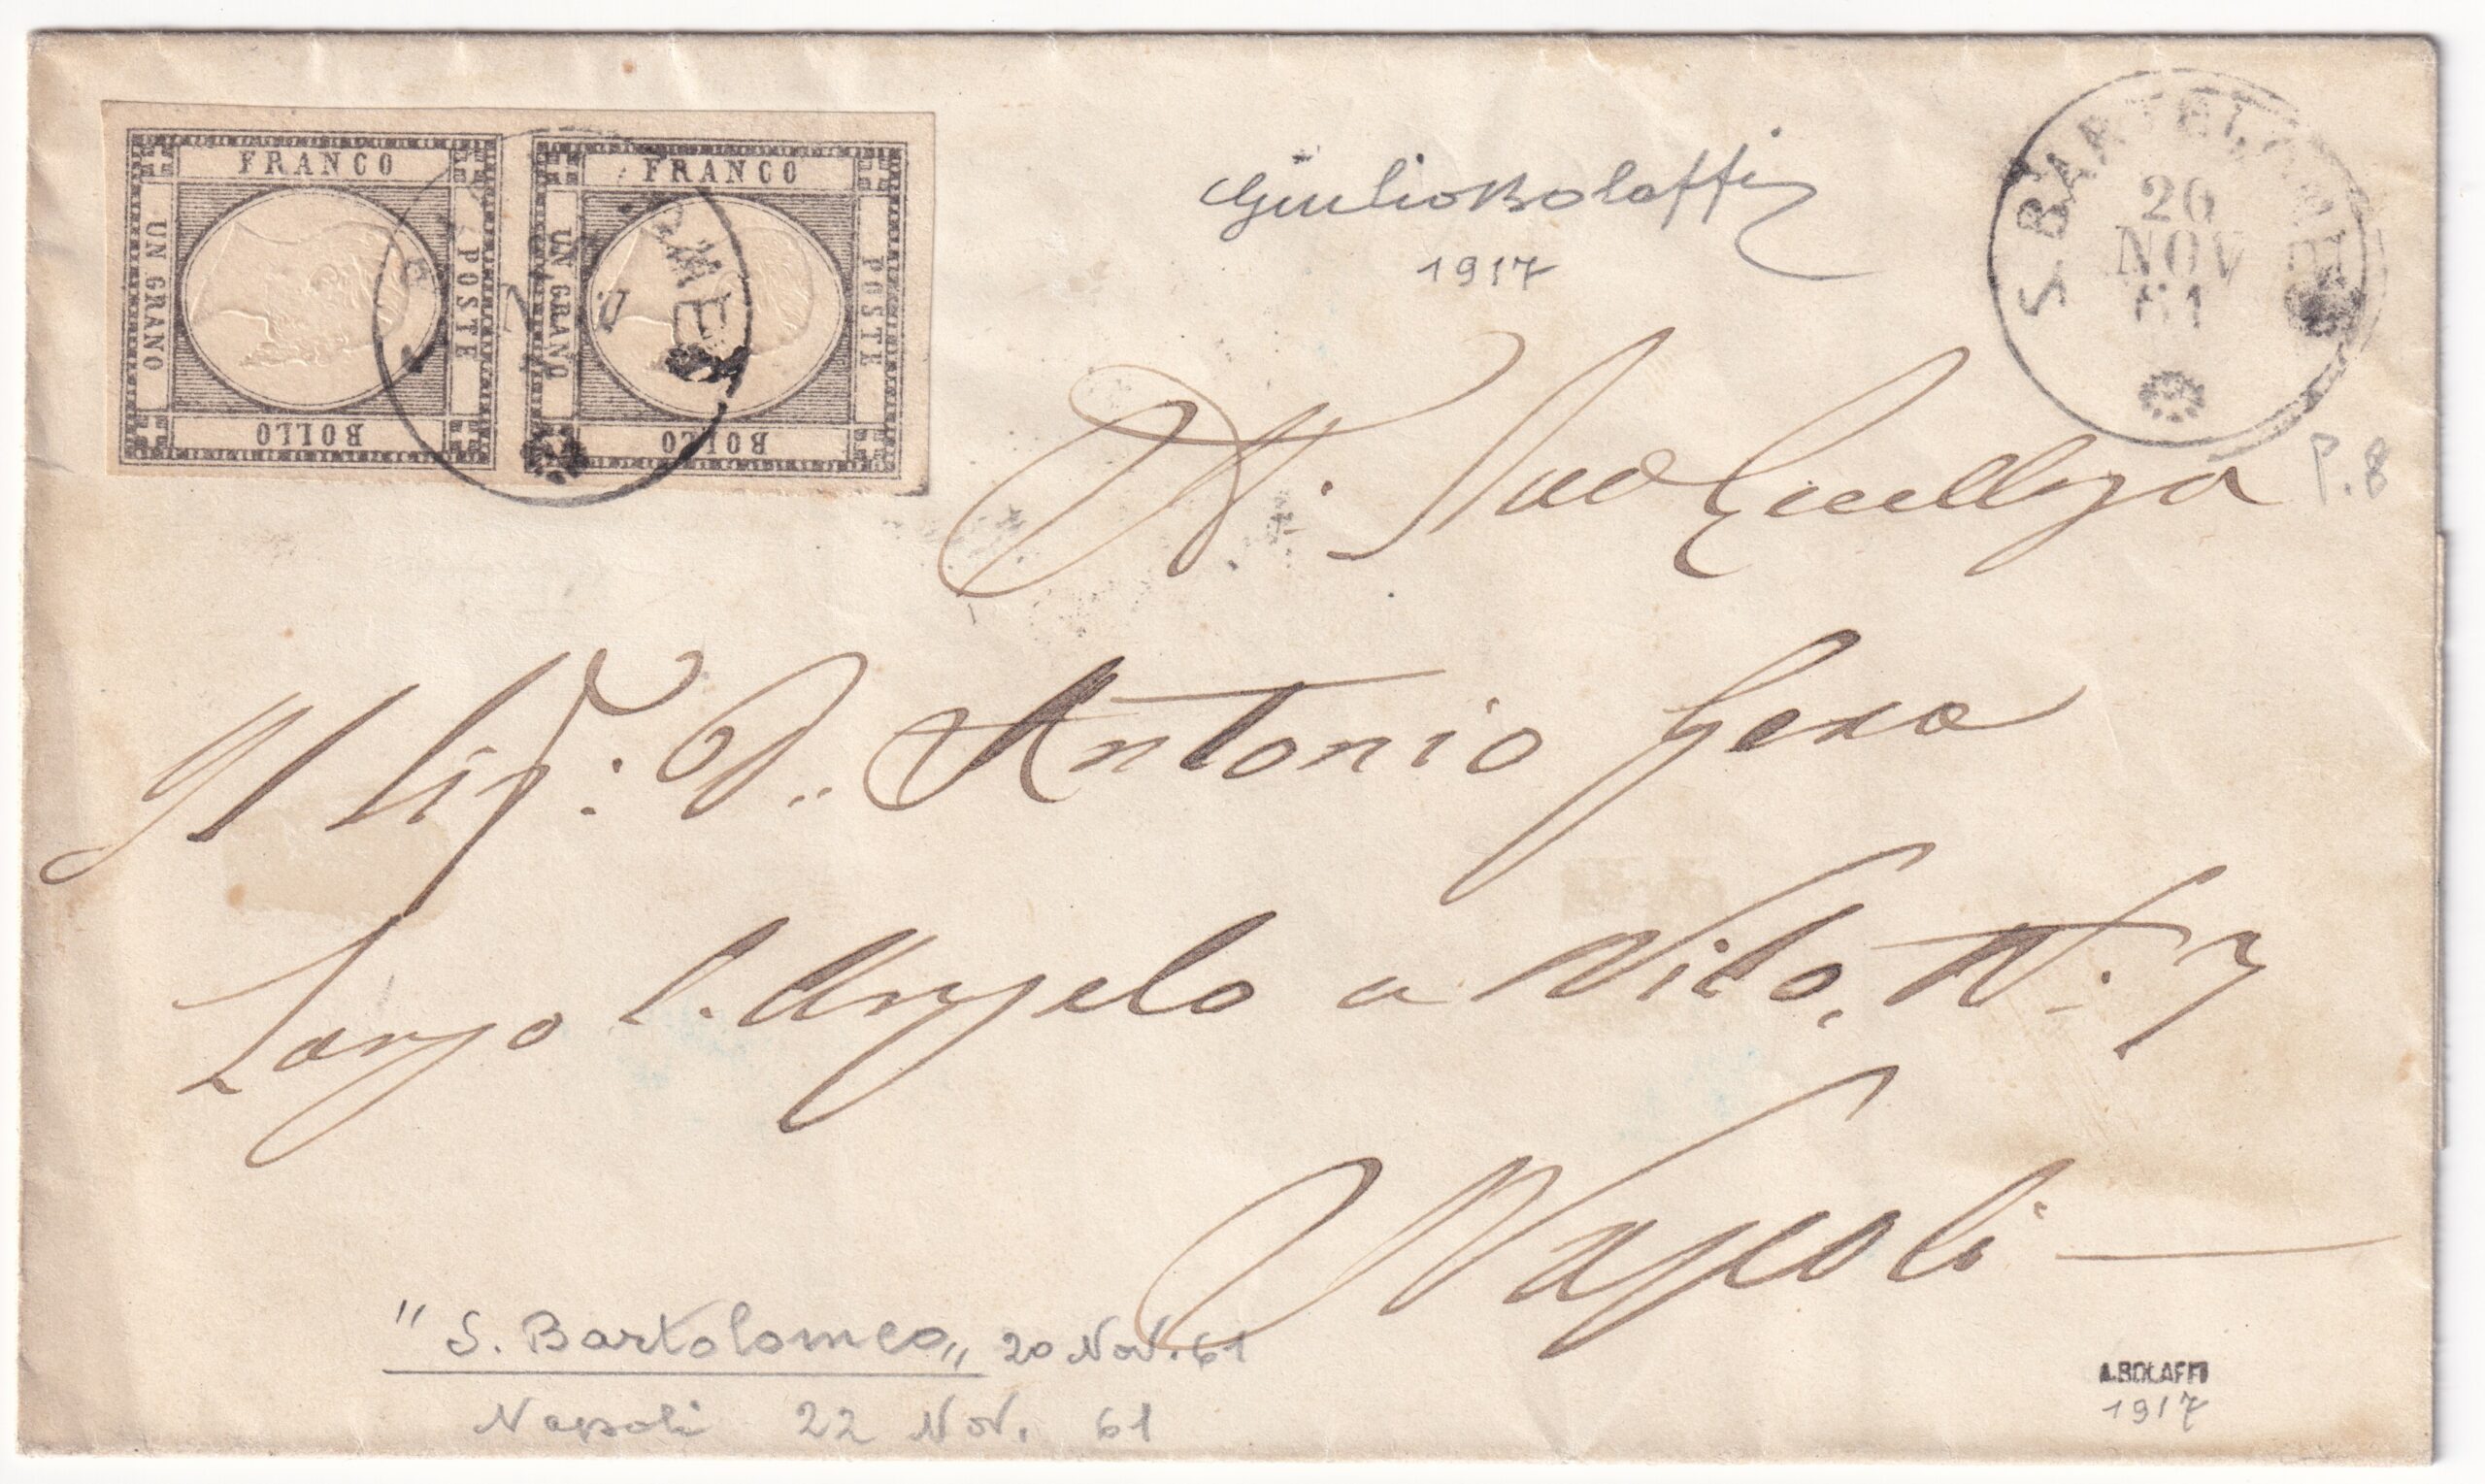 FRANCO
UN GRANO
POSTE
BOLLO
FRANCO
UN GRANO
POSTE
BOLLO
Giulio Bolaffi
1917
S. BARTOLOMEO
20
NOV
61
P. 8
A S. Sua Eccellenza
Il Sig.r: D.. Antonio
Largo S. Angelo a Nilo, N. 7
Napoli
"S. Bartolomeo" 20 Nov. 61
Napoli 22 Nov. 61
A.BOLAFFI
1917